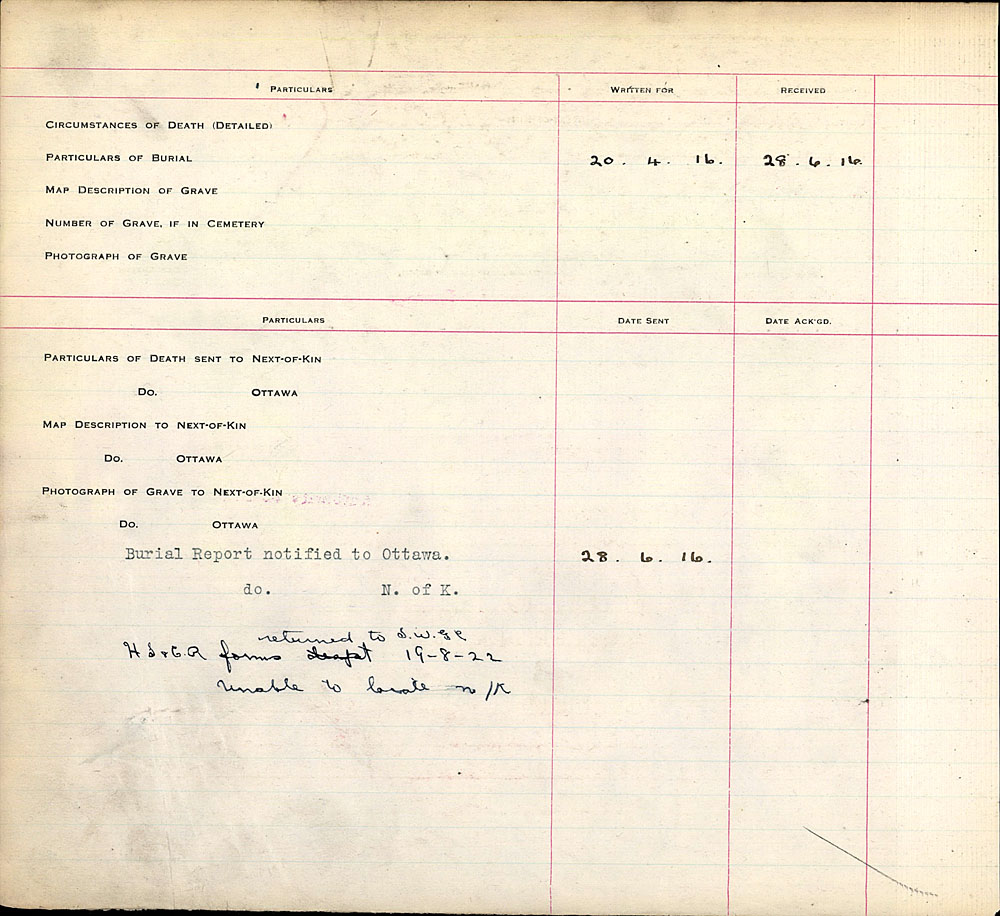 PARTICULARS WRITTEN FOR RECEIVED
CIRCUMSTANCES OF DEATH (DETAILED)
PARTICULARS OF BURIAL 20. 4. 16. 28. 6. 16.
MAP DESCRIPTION OF GRAVE
NUMBER OF GRAVE, IF IN CEMETERY
PHOTOGRAPH OF GRAVE
PARTICULARS DATE SENT DATE ACK'GD.
PARTICULARS OF DEATH SENT TO NEXT-OF-KIN
DO. OTTAWA
MAP DESCRIPTION TO NEXT-OF-KIN
DO. OTTAWA
PHOTOGRAPH OF GRAVE TO NEXT-OF-KIN
DO. OTTAWA
Burial Report notified to Ottawa. 28. 6. 16.
do. N. of K.
returned to
forms 19-8-22
Unable to locate n/K